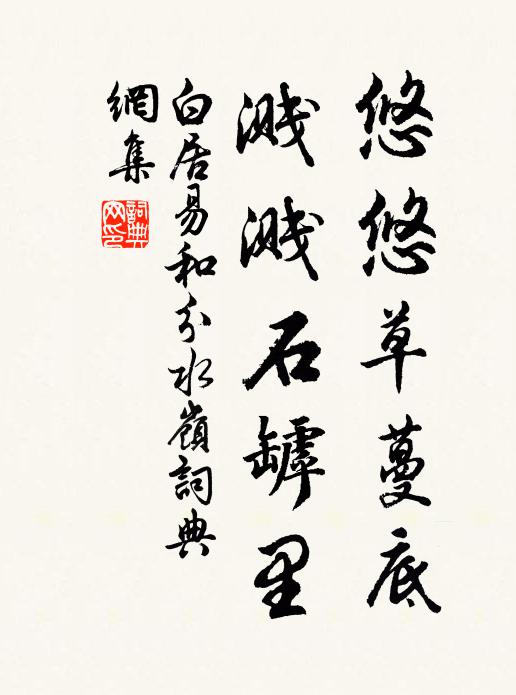 悠悠草蔓底
濺濺石罅里
白居易和分水嶺詞典
網集
詞典
网印